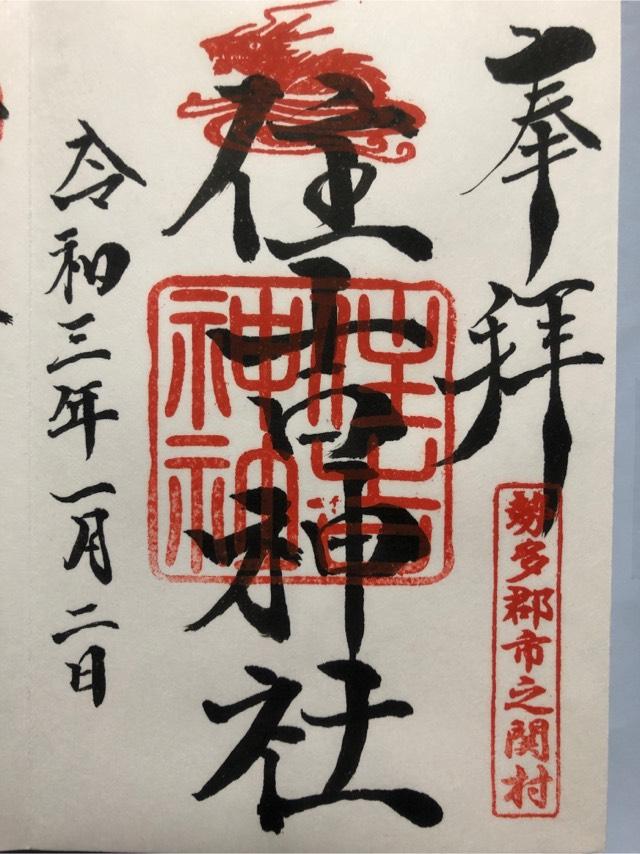 奉拝
勢多郡市之関村
住吉神社
住吉神社
令和三年一月二日